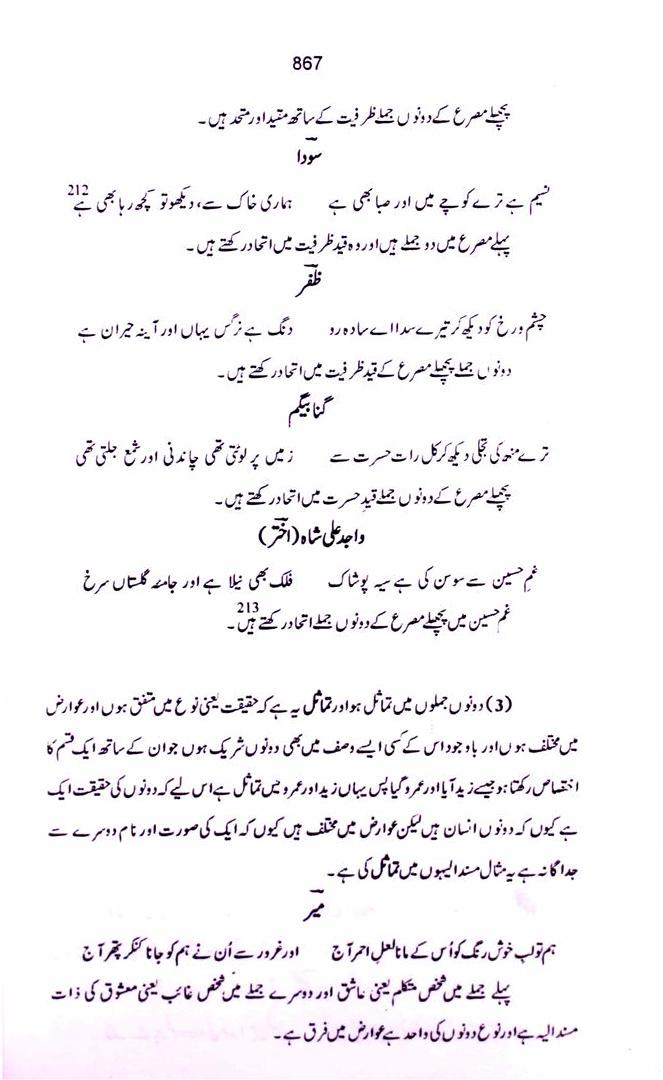 867
پچھلے مصرع کے دونوں جملے ظرفیت کے ساتھ مقید اور متحد ہیں۔
سودا
نسیم ہے ترے کوچے میں اور صبا بھی ہے ہماری خاک سے، دیکھو تو کچھ رہا بھی ہے 212
پہلے مصرع میں دو جملے ہیں اور وہ قید ظرفیت میں اتحاد رکھتے ہیں۔
ظفر
چشم و رخ کو دیکھ کر تیرے سدا اے سادہ رو دنگ ہے نرگس یہاں اور آینہ حیران ہے
دونوں جملے پچھلے مصرع کے قید ظرفیت میں اتحاد رکھتے ہیں۔
گنا بیگم
ترے منھ کی تجلی دیکھ کر کل رات حسرت سے زمیں پر لوٹتی تھی چاندنی اور شمع جلتی تھی
پچھلے مصرع کے دونوں جملے قیدِ حسرت میں اتحاد رکھتے ہیں۔
واجد علی شاہ (اختر)
غمِ حسین سے سوسن کی ہے سیہ پوشاک فلک بھی نیلا ہے اور جامۂ گلستاں سرخ
غم حسین میں پچھلے مصرع کے دونوں جملے اتحاد رکھتے ہیں۔ 213
(3) دونوں جملوں میں تماثل ہو اور تماثل یہ ہے کہ حقیقت یعنی نوع میں متفق ہوں اور عوارض
میں مختلف ہوں اور باوجود اس کے کسی ایسے وصف میں بھی دونوں شریک ہوں جو ان کے ساتھ ایک قسم کا
اختصاص رکھتا ہو جیسے زید آیا اور عمرو گیا پس یہاں زید اور عمرو میں تماثل ہے اس لیے کہ دونوں کی حقیقت ایک
ہے کیوں کہ دونوں انسان ہیں لیکن عوارض میں مختلف ہیں کیوں کہ ایک کی صورت اور نام دوسرے سے
جداگانہ ہے یہ مثال مسند الیہوں میں تماثل کی ہے۔
میر
ہم تو لب خوش رنگ کو اُس کے مانا لعل احمر آج اور غرور سے اُن نے ہم کو جانا کنکر پتھر آج
پہلے جملے میں شخص متکلم یعنی عاشق اور دوسرے جملے میں شخص غائب یعنی معشوق کی ذات
مسند الیہ ہے اور نوع دونوں کی واحد ہے عوارض میں فرق ہے۔